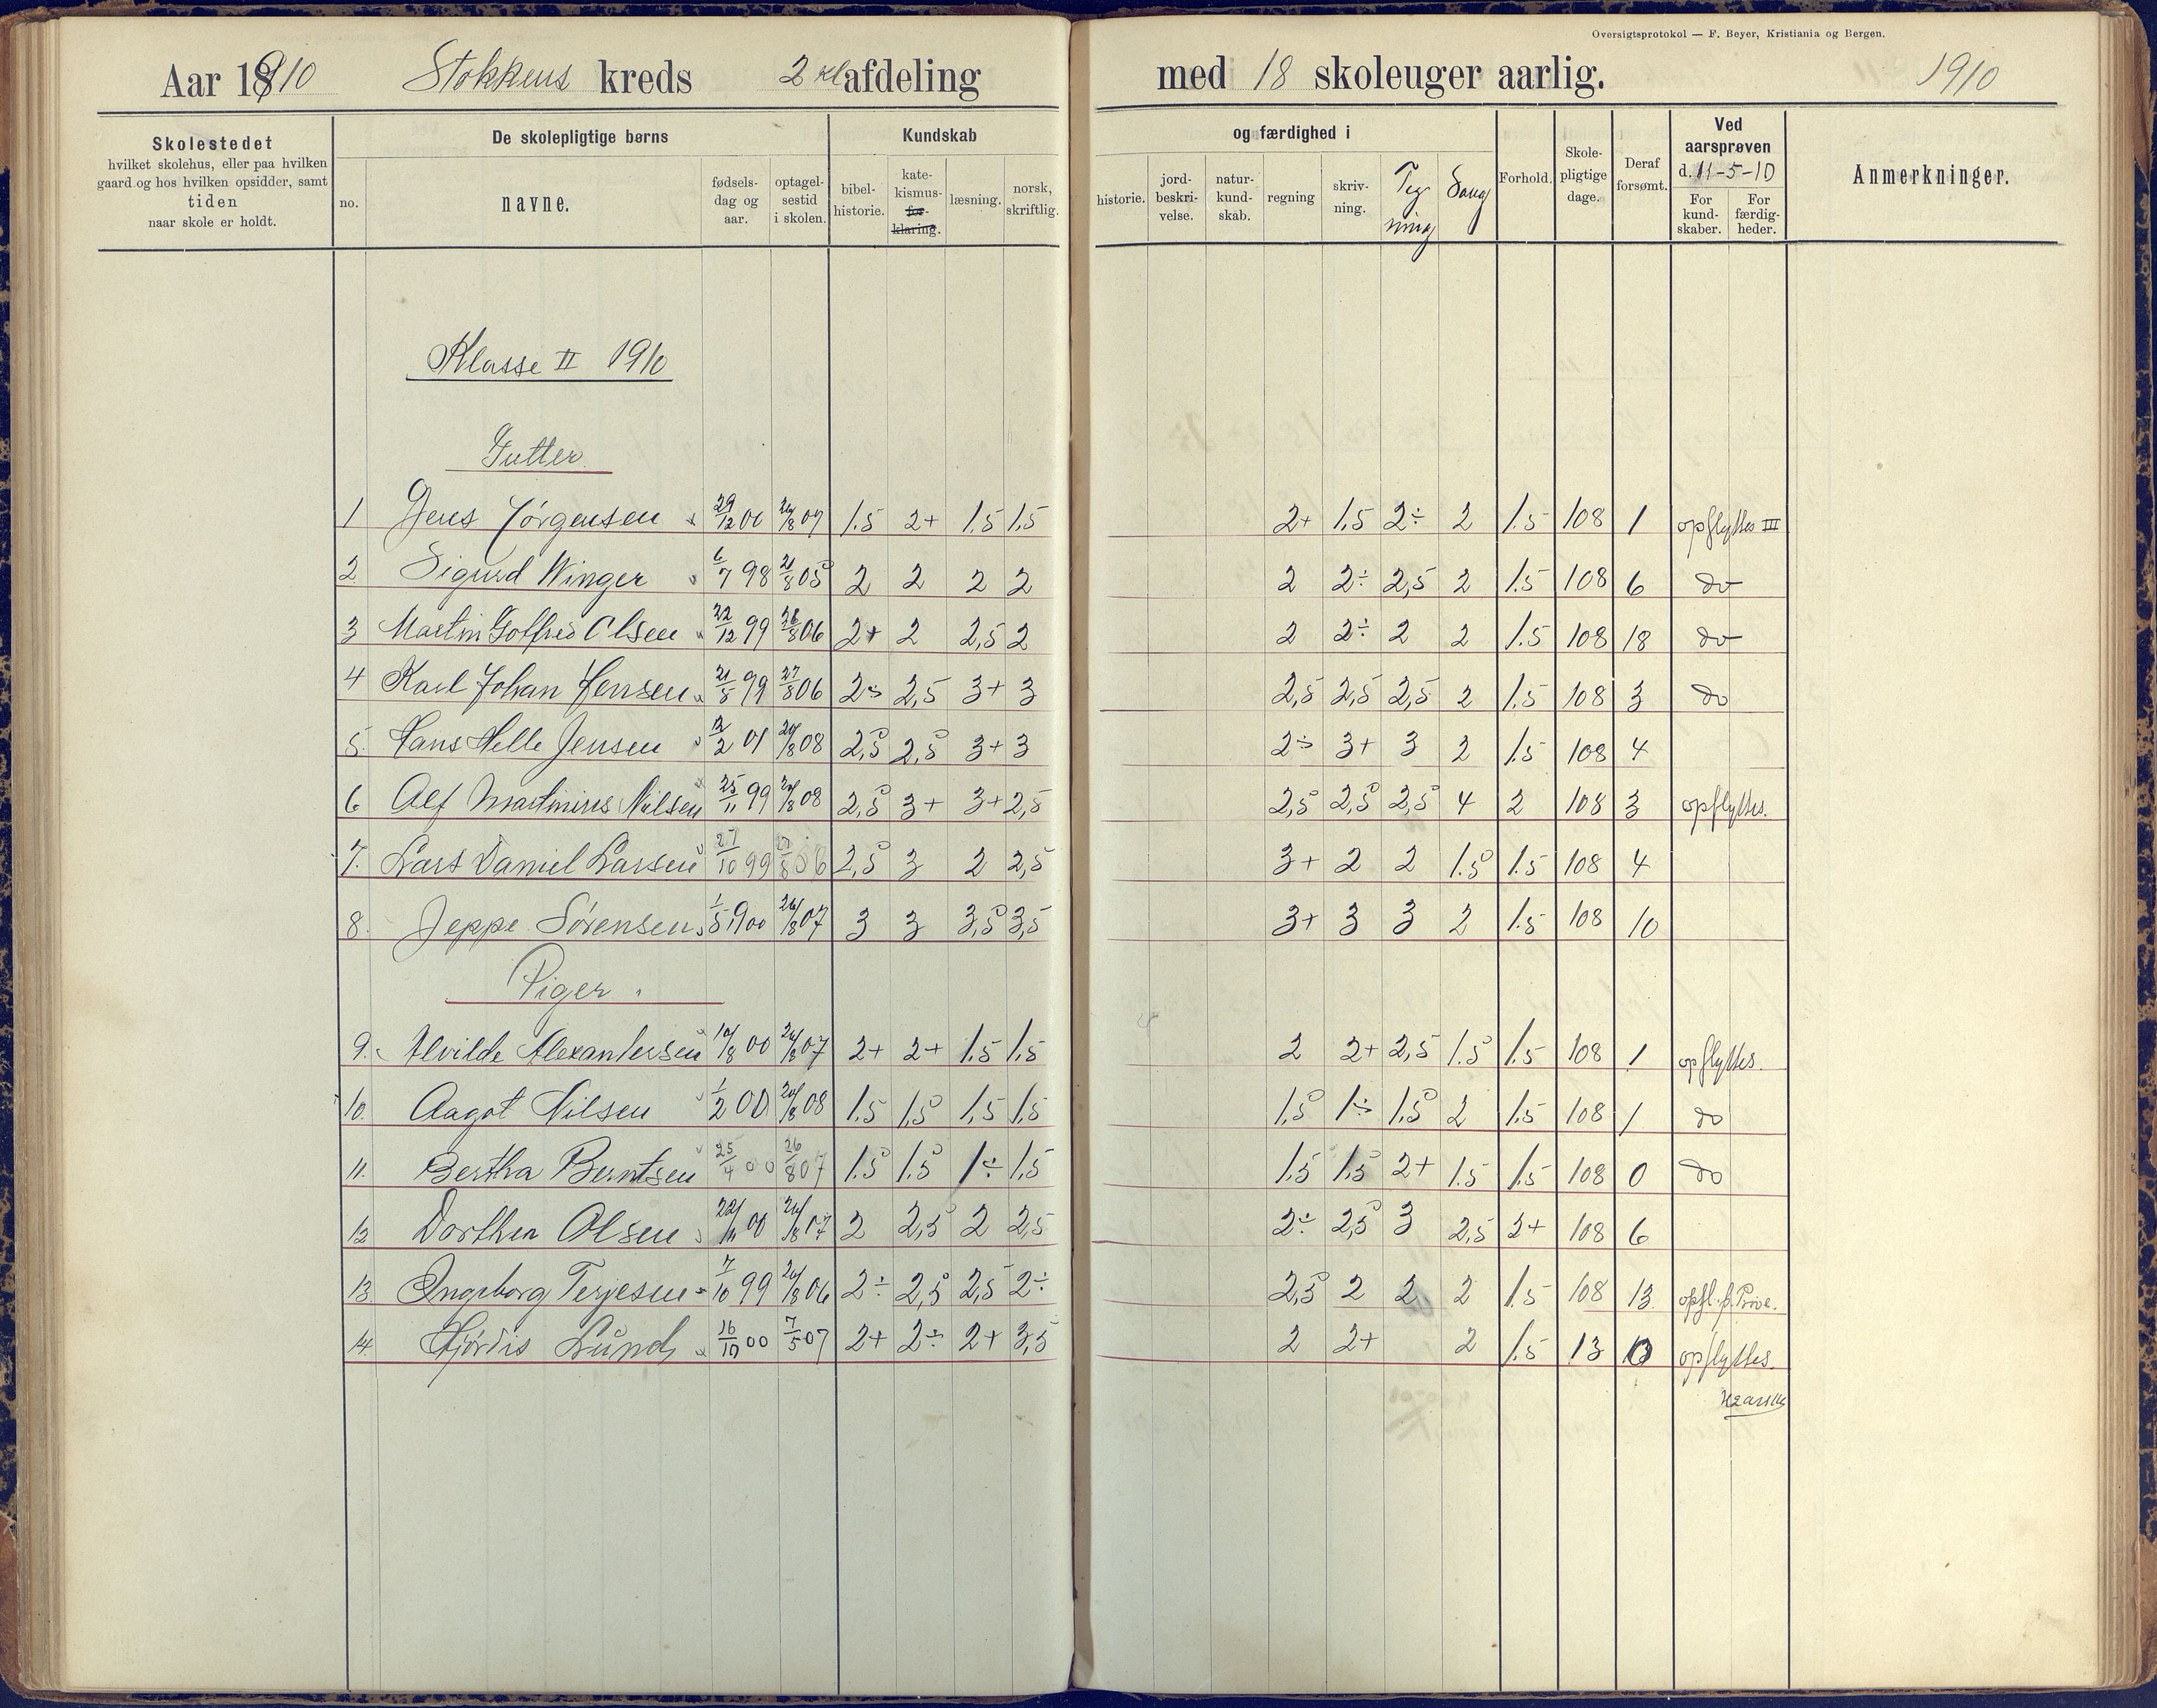 Oversigtsprotokol — F. Beyer, Kristiania og Bergen.
Aar 1910 Stokkens kreds 2 kl afdeling med 18 skoleuger aarlig. 1910
Skolestedet
hvilket skolehus, eller paa hvilken
gaard og hos hvilken opsidder, samt
tiden
naar skole er holdt.
De skolepligtige børns
no. navne. fødsels-dag og aar. optagel-sestid i skolen.
Kundskab og færdighed i
bibel-historie. kate-kismus-for-klaring. læsning. norsk, skriftlig. historie. jord-beskri-velse. natur-kund-skab. regning skriv-ning. Tegning Sang
Forhold. Skole-pligtige dage. Deraf forsømt.
Ved aarsprøven d. 11-5-10
For kund-skaber. For færdig-heder.
Anmerkninger.
Klasse II 1910
Gutter
1 Jens Jørgensen 29/12 00 26/8 07 1.5 2+ 1.5 1.5 2+ 1.5 2÷ 2 1.5 108 1 opflyttes III
2 Sigurd Winger 6/7 98 21/8 05 2 2 2 2 2 2÷ 2,5 2 1.5 108 6 do
3 Martin Gotfred Olsen 22/12 99 28/8 06 2+ 2 2,5 2 2 2÷ 2 2 1.5 108 18 do
4 Karl Johan Jensen 21/8 99 27/8 06 2÷ 2,5 3+ 3 2,5 2,5 2,5 2 1.5 108 3 do
5. Hans Helle Jensen 12/2 01 24/8 08 2,5 2,5 3+ 3 2÷ 3+ 3 2 1.5 108 4
6 Alf Martinius Nilsen 25/11 99 24/8 08 2,5 3+ 3+ 2,5 2,5 2,5 2,5 4 2 108 3 opflyttes.
7. Lars Daniel Larsen 27/10 99 27/8 06 2,5 3 2 2,5 3+ 2 2 1.5 1.5 108 4
8. Jeppe Sørensen 1/5 1900 26/8 07 3 3 3,5 3,5 3+ 3 3 2 1.5 108 10
Piger.
9. Alvilde Alexandersen 10/8 00 26/8 07 2+ 2+ 1.5 1.5 2 2+ 2,5 1.5 1.5 108 1 opflyttes.
10. Aagot Nilsen 1/2 00 24/8 08 1.5 1,5 1,5 1,5 1,5 1÷ 1,5 2 1.5 108 1 do
11. Bertha Berntsen 25/4 00 26/8 07 1.5 1.5 1÷ 1,5 1,5 1,5 2+ 1.5 1.5 108 0 do
12 Dorthea Olsen 22/11 00 26/8 07 2 2,5 2 2,5 2÷ 2,5 3 2,5 2+ 108 6
13. Ingeborg Terjesen 7/10 99 24/8 06 2÷ 2,5 2,5 2÷ 2,5 2 2 2 1.5 108 13. opfl. p. Prøve.
14. Hjørdis Lund 16/10 00 7/5 07 2+ 2÷ 2+ 3,5 2 2+ 2 1.5 13 0 opflyttes.